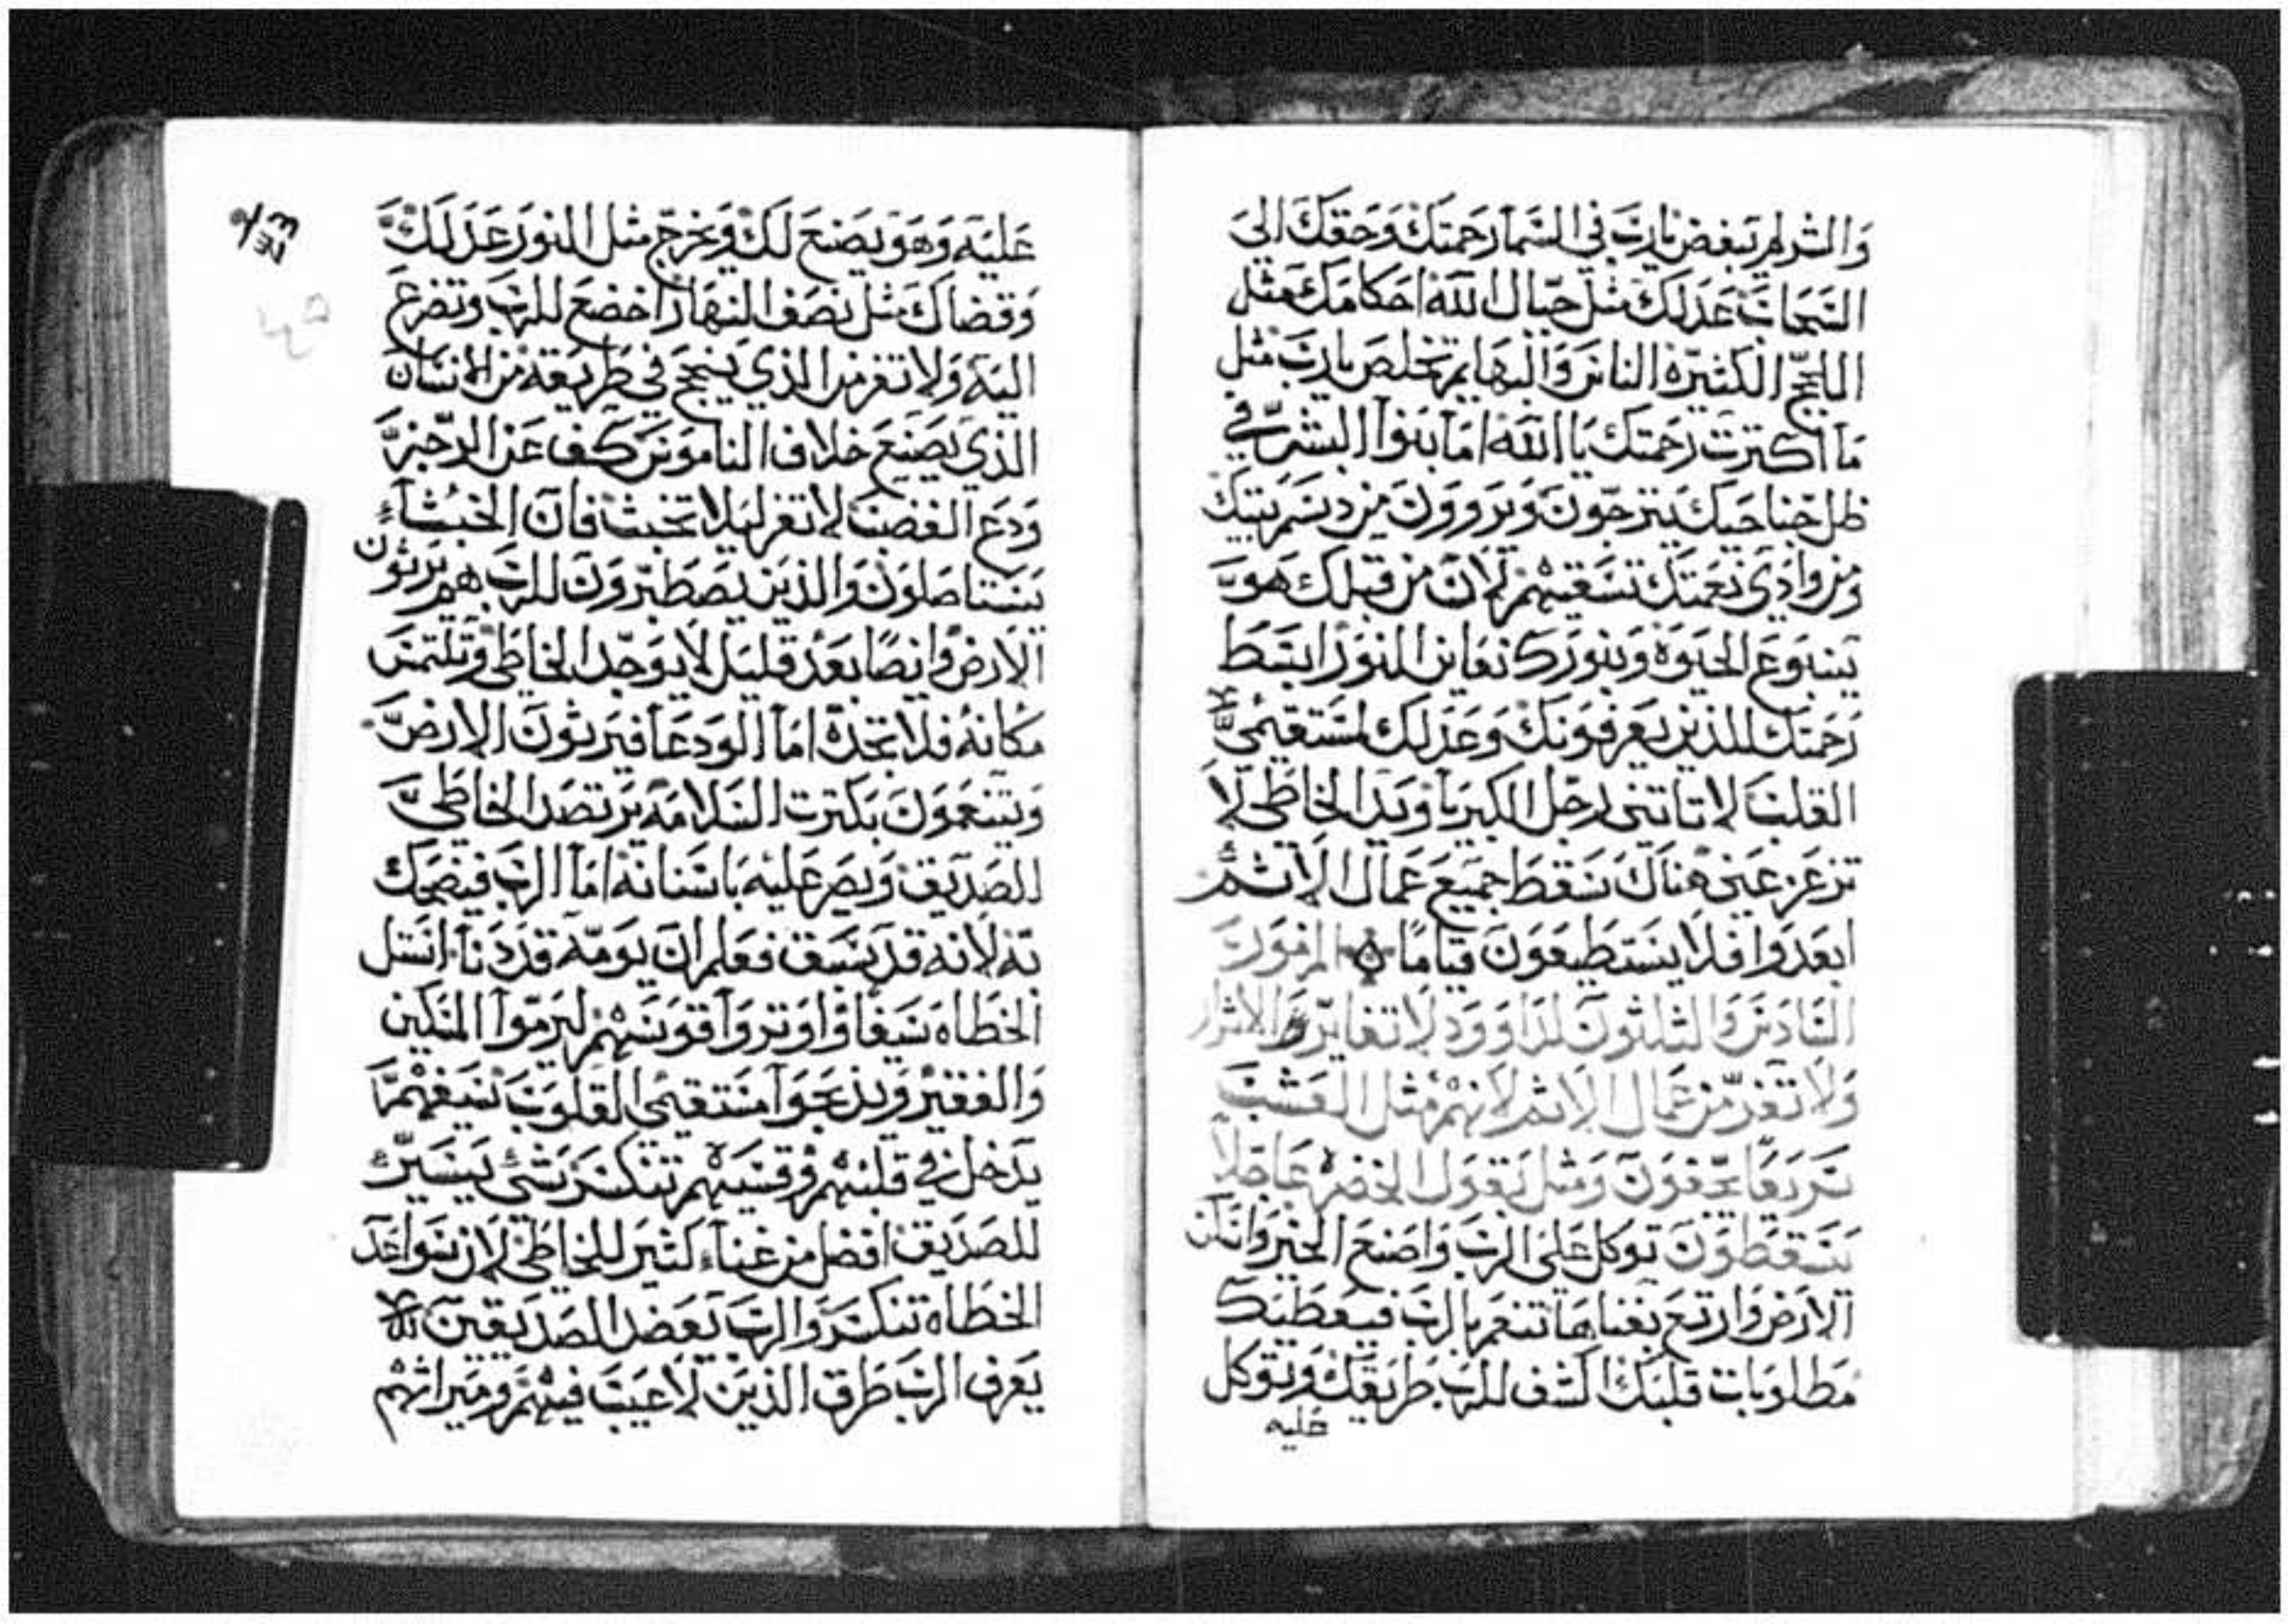 والشر لم يبغض يارب في السما رحمتك وحقك الى
السحاب عدلك مثل جبال الله احكامك مثل
اللجج الكثيرة الناس والبهايم تخلص يارب مثل
ما اكترت رحمتك يا الله اما بنوا البشر في
ظل جناحيك يترجون ويروون من دسم بيتك
ومن وادي نعمتك تسقيهم لان من قبلك هو
ينبوع الحيوة وبنورك نعاين النور ابسط
رحمتك للذين يعرفونك وعدلك لمستقيمي
القلب لا تاتني رجل الكبريا ويد الخاطي لا
تزعزعني هناك سقط جميع عمال الاثم
ابعدوا فلا يستطيعون قياما المزمور
السادس والثلثون لداوود لا تغاير الاشرار
ولا تغر من عمال الاثم لانهم مثل العشب
سريعا يجفون ومثل بقول الخضرة عاجلا
يسقطون توكل على الرب واصنع الخير واسكن
الارض وارتع بغناها تنعم بالرب فيعطيك
مطلوبات قلبك اكشف للرب طريقك وتوكل
عليه
عليه وهو يصنع لك ويخرج مثل النور عدلك
وقضاك مثل نصف النهار اخضع للرب وتضرع
اليه ولا تغر من الذي ينجح في طريقه من الانسان
الذي يصنع خلاف الناموس كف عن الرجز
ودع الغضب لا تغر ليلا تخبث فان الخبثاء
يستاصلون والذين يصطبرون للرب هم يرثون
الارض وايضا بعد قليل لا يوجد الخاطي وتلتمس
مكانه فلا تجده اما الودعا فيرثون الارض
ويتنعمون بكترت السلامه يرتصد الخاطي
للصديق ويصر عليه باسنانه اما الرب فيضحك
به لانه قد يسبق فعلم ان يومه قد دنا استل
الخطاه سيفا واوتروا قوسهم ليرموا المسكين
والفقير ويذبحوا مستقيمى القلوب سيفهم
يدخل في قلبهم وقسيهم تنكسر شي يسير
للصديق افضل من غناء كثير للخاطي لان سواعد
الخطاه تنكسر والرب يعضد الصديقين
يعرف الرب طرق الذين لا عيب فيهم وميراثهم